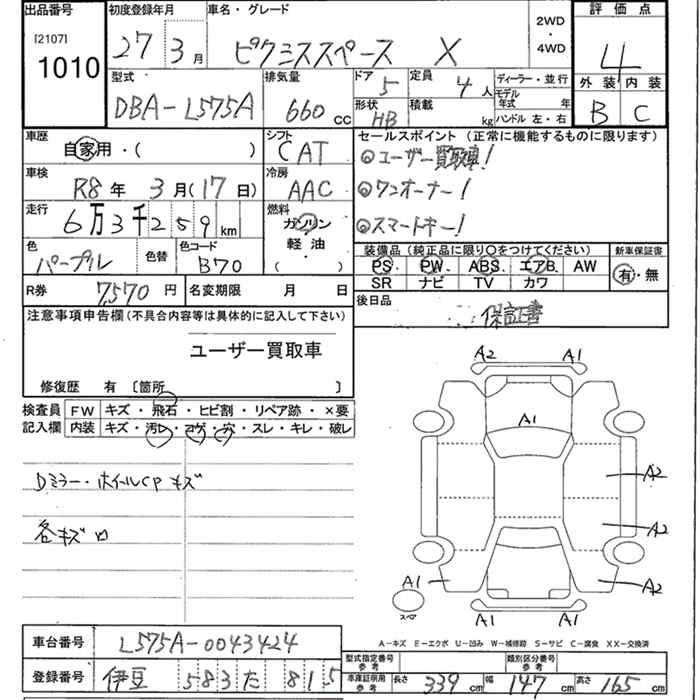 出品番号
[2107]
1010
初度登録年月
27 3月
車名・グレード
ピクシススペース X
2WD
・
4WD
評価点
4
外装 内装
B C
型式
DBA-L575A
排気量
660 cc
ドア 5
定員 4人
形状 HB
積載 kg
ディーラー・並行
モデル年式 年
ハンドル 左・右
車歴
自家用・( )
シフト
CAT
車検
R8年 3月(17日)
冷房
AAC
走行
6万3千259km
燃料
ガソリン
軽油
( )
色
パープル
色替
色コード
B70
セールスポイント (正常に機能するものに限ります)
◎ユーザー買取車!
◎ワンオーナー!
◎スマートキー!
装備品(純正品に限り○をつけてください)
PS PW ABS エアB AW
SR ナビ TV カワ
新車保証書
有・無
R券 7,570円
名変期限 月 日
後日品
保証書
注意事項申告欄(不具合内容等は具体的に記入して下さい)
ユーザー買取車
修復歴 有 〔箇所 〕
検査員記入欄
FW キズ・飛石・ヒビ割・リペア跡・×要
内装 キズ・汚レ・コゲ・穴・スレ・キレ・破レ
Dミラー・ホイールCPキズ
各キズ
A2 A1
A1
A2
A2
A1 A2
スペア
A1 A1
A-キズ E-エクボ U-凹み W-補修跡 S-サビ C-腐食 XX-交換済
車台番号 L575A-0043424
登録番号 伊豆 583 た 815
型式指定番号 参考
類別区分番号 参考
車庫証明用 参考
長さ 339cm 幅 147cm 高さ 165cm